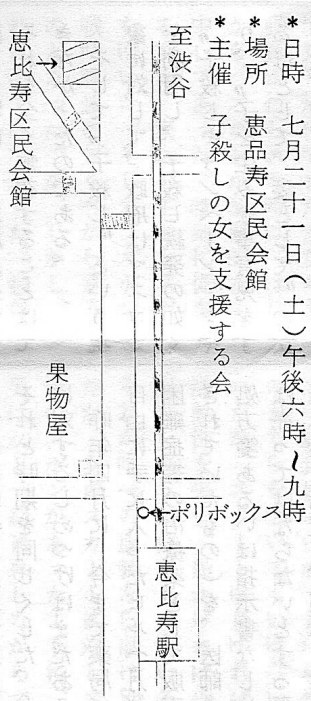 *日時　七月二十一日(土)午後六時~九時
*場所　恵品寿区民会館
*主催　子殺しの女を支援する会
至渋谷
恵比寿区民会館
果物屋
ポリボックス
恵比寿駅